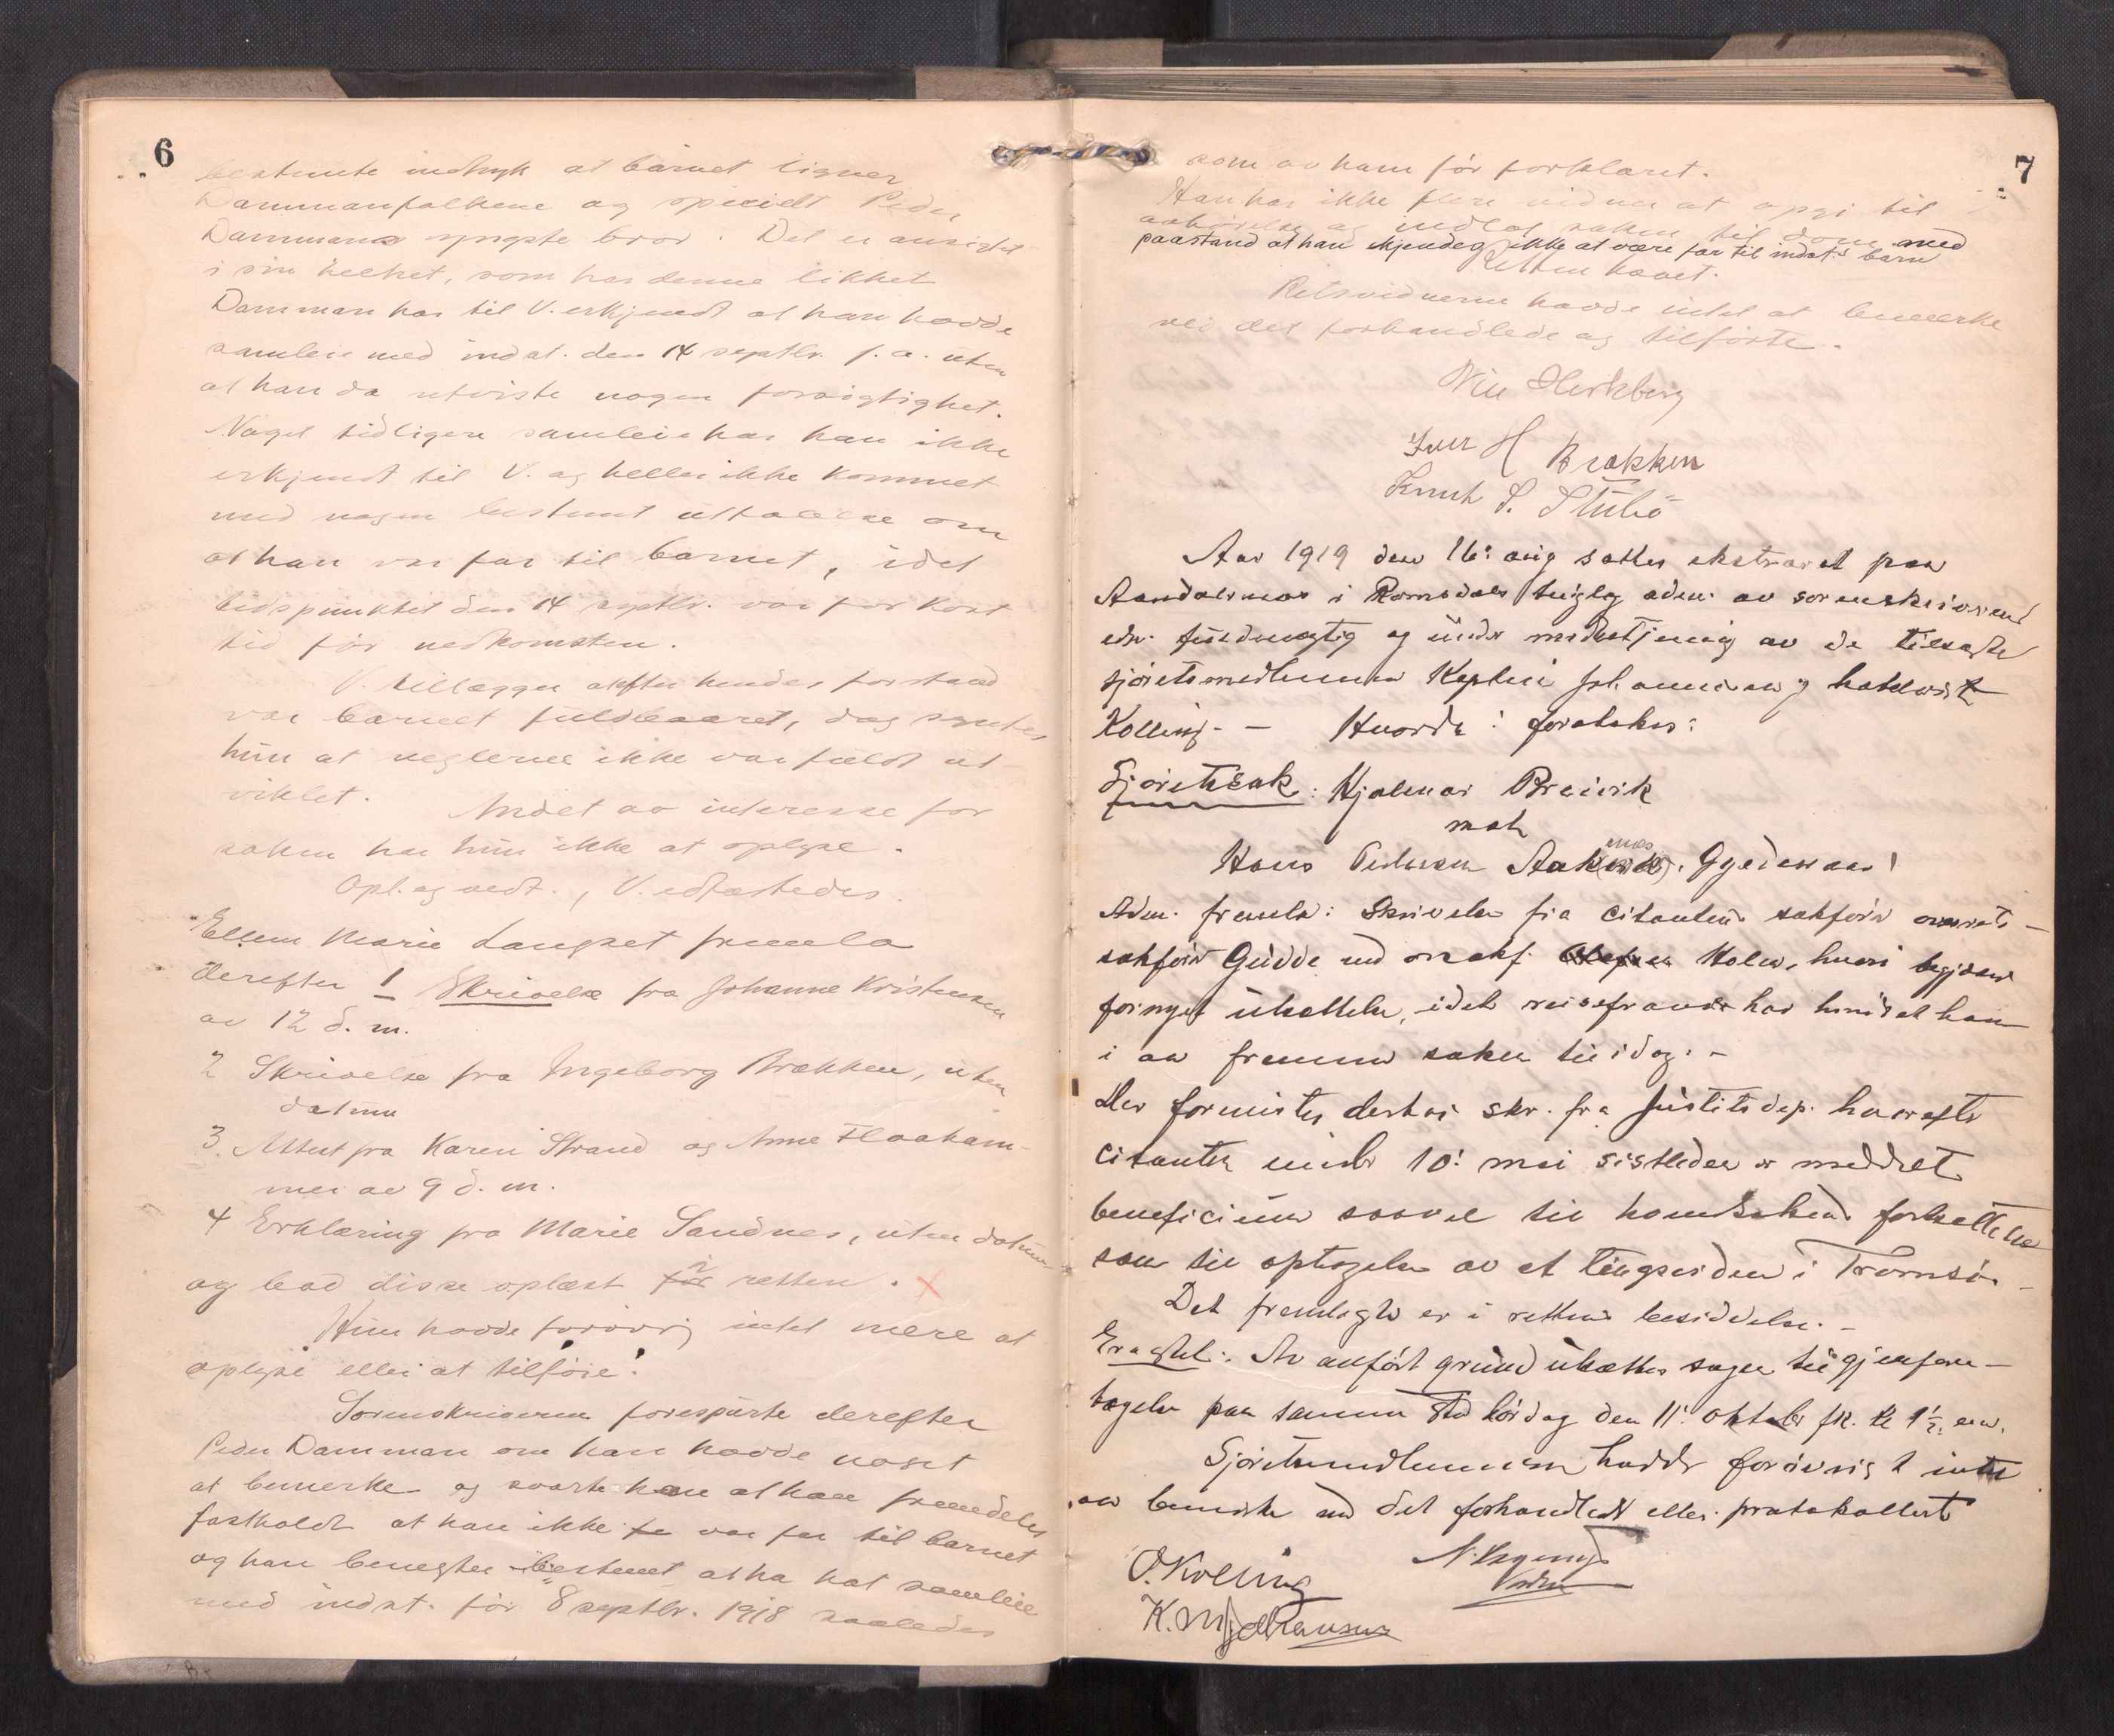 6
bestemte indtryk at barnet ligner
Dammanfolkene og specielt Peder
Dammans yngste bror. Det er ansigtet
i sin helhet, som har denne likhet
Damman har til V. erkjendt at han hadde
samleie med indst. den 14 septbr. f. a. uten
at han da utviste nogen forsigtighet.
Noget tidligere samleie har han ikke
erkjendt til V. og heller ikke kommet
med nogen bestemt uttalelse om
at han var far til barnet, idet
tidspunktet den 14 septbr. var for kort
tid før nedkomsten.
V. tillægger at efter hendes forstand
var barnet fuldbaaret, dog syntes
hun at neglene ikke var fuldt ut
viklet. Andet av interesse for
saken har hun ikke at oplyse.
Opl. og vedt., V. edfæstedes.
Ellen Marie Langset fremla
derefter 1 Skrivelse fra Johanne Kristensen
av 12 d. m.
2 Skrivelse fra Ingeborg Brækken, uten
datum
3. Attest fra Karen Strand og Anne Flaaham-
mer av 9 d. m.
4 Erklæring fra Marie Sandnes, uten datum
og bad disse oplæst for i retten. X
Hun havde forøvrig intet mere at
oplyse eller at tilføie.
Sorenskriveren forespurte derefter
Peder Damman om han havde noget
at bemerke og svarte han at han fremdeles
fastholdt at han ikke fa var far til barnet
og han benegter bestemt at ha hat samleie
med indst. før 8 septbr. 1918 saaledes
7
som av ham før forklaret.
Han har ikke flere vidner at opgi til
avhørelse og indlot saken til dom med
paastand at han ikjendes ikke at være far til indst.s barn
Retten hævet.
Retsvidnerne havde intet at bemerke
ved det forhandlede og tilførte.
Hertzberg
Iver H Brækken
Knut S. Stubø
Aar 1919 den 16: aug sattes ekstraret paa
Aandalsnes i Romsdals tinglag adm. av sorenskriverens
edsv. fuldmægtig og under medbetjening av de tilsagte
sjøretsmedlemmer Kaptein Johannessen og hotelvert
Kolling. - Hvorda: foretokes:
Sjøretssak: Hjalmar Breivik
mot
Hans Pedersen Aaknes.
Adm. fremla: Skrivelse fra citantens sakfører overrets-
sakfører Gudde ved orsakf. Holm, hvori begjæres
fornyet utsættelse, idet reisefravær har hindret ham
i aa fremme saken til idag. -
Der formintes derhos skr. fra Justitsdep. hvorefter
citanten under 10: mai sistleden er meddelt
beneficium saavel til hovedsakens fortsættelse
som til optagelse av et tingsvidne i Tromsø. -
Det fremlagte er i rettens besiddelse. -
Eragtet: Av anført grund utsættes sagen til gjenfore-
tagelse paa samme sted lørdag den 11: oktober fk. kl 9½ em.
Sjøretsmedlemmerne hadde forøvrig intet
aa bemerke ved det forhandlede eller protokollerte
O. Kolling
K. M. Johansen